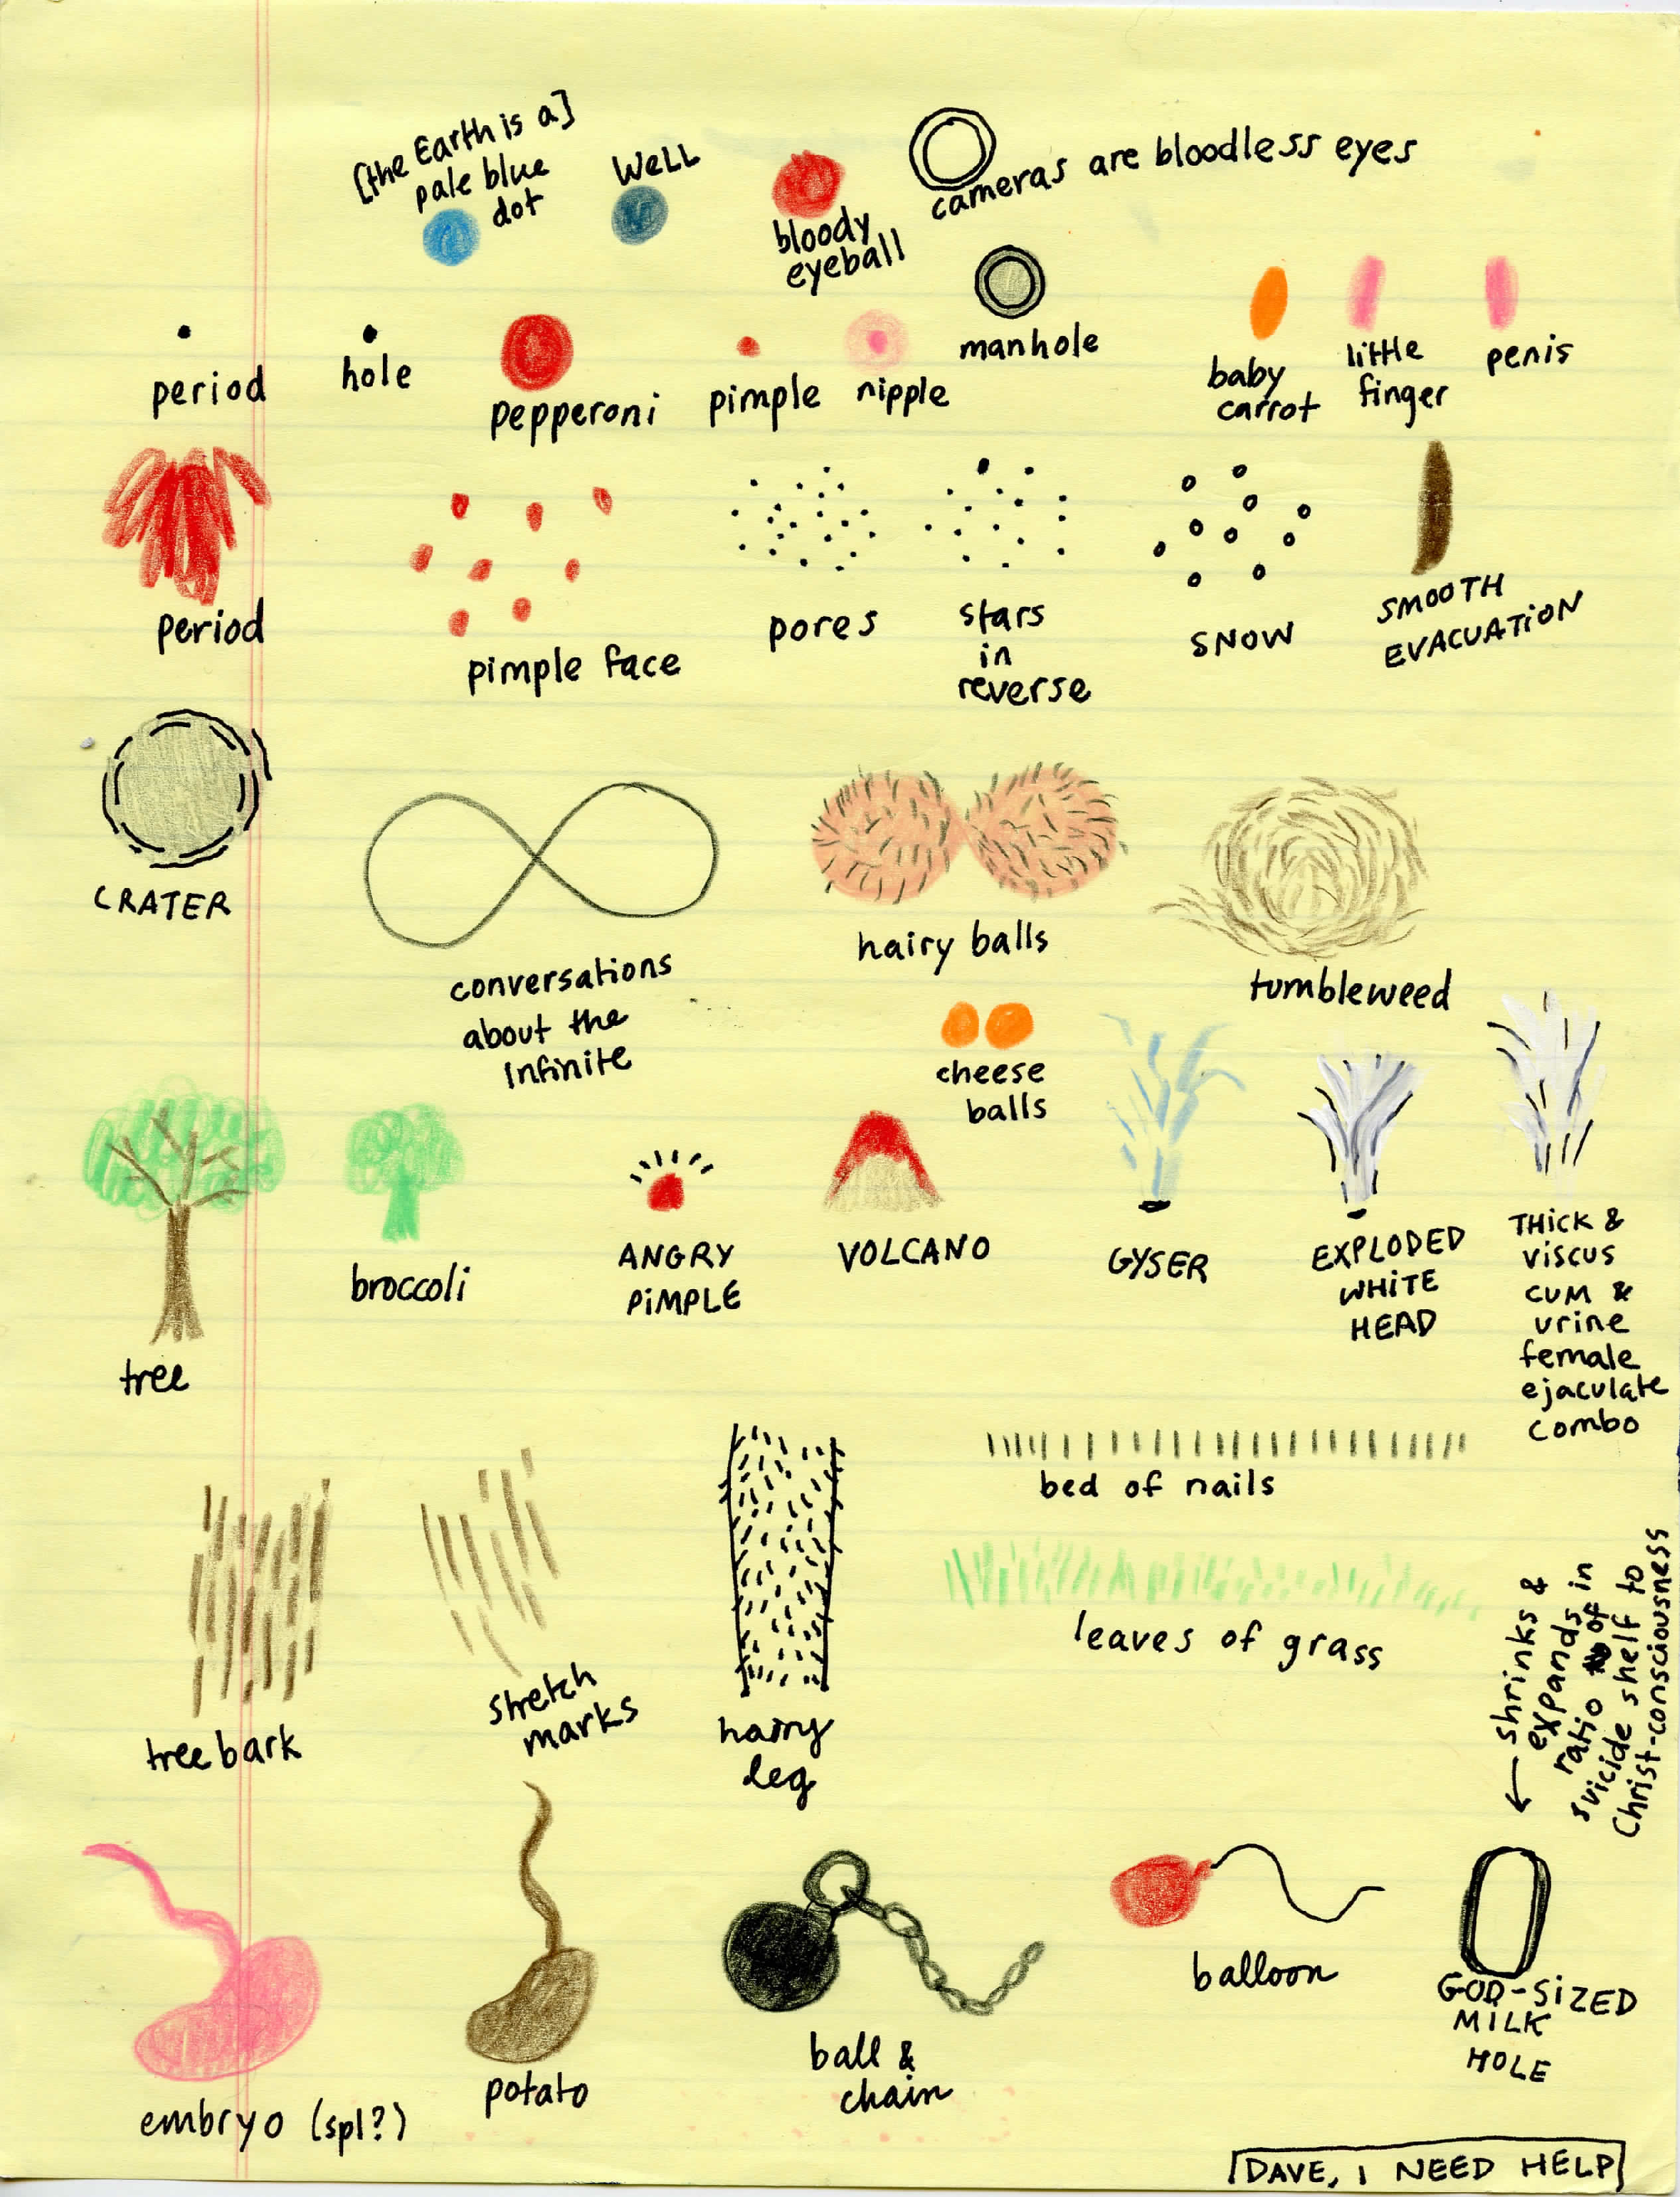 [the Earth is a]
pale blue
dot
WELL
bloody
eyeball
cameras are bloodless eyes
manhole
period
hole
pepperoni
pimple
nipple
baby
carrot
little
finger
penis
period
pimple face
pores
stars
in
reverse
SNOW
SMOOTH
EVACUATION
CRATER
conversations
about the
Infinite
hairy balls
tumbleweed
cheese
balls
tree
broccoli
ANGRY
PIMPLE
VOLCANO
GYSER
EXPLODED
WHITE
HEAD
THICK &
VISCUS
CUM &
urine
female
ejaculate
combo
tree bark
stretch
marks
hairy
leg
bed of nails
leaves of grass
shrinks &
expands in
ratio of in
suicide shelf to
Christ-consciousness
embryo (spl?)
potato
ball &
chain
balloon
GOD-SIZED
MILK
HOLE
DAVE, I NEED HELP